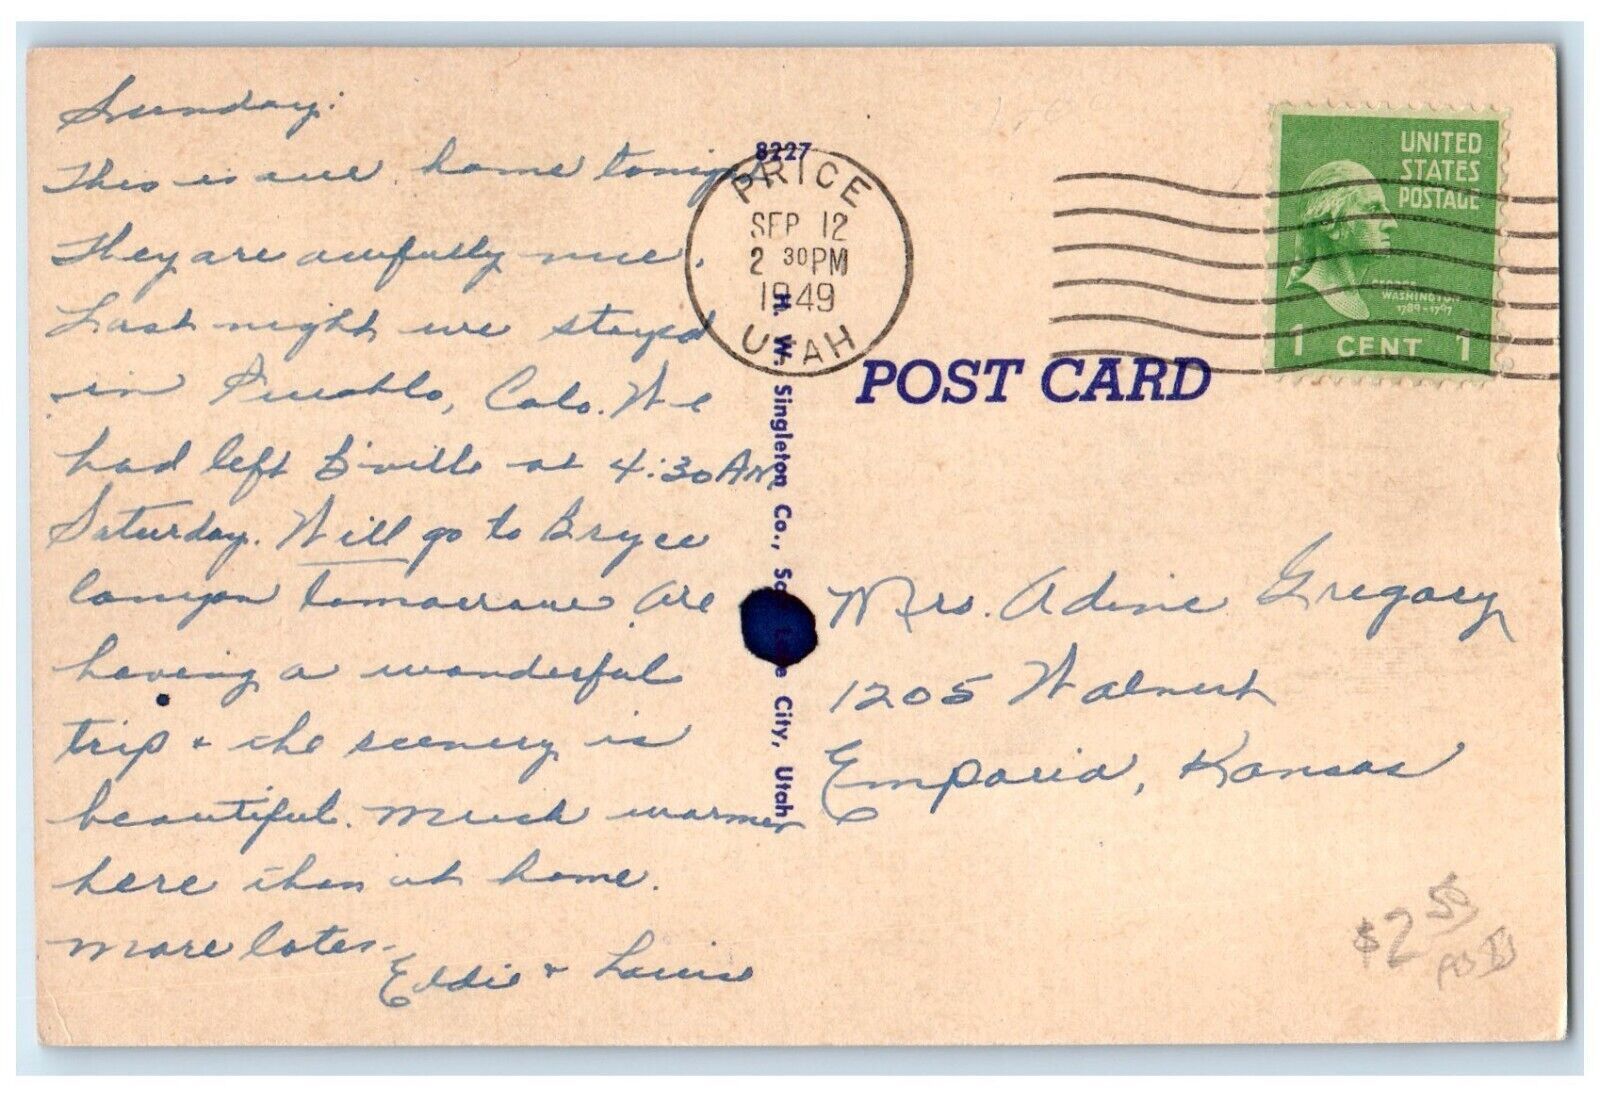 Sunday:
This is our home tonight
They are awfully nice.
Last night we stayed
in Pueblo, Colo. We
had left B'ville at 4:30 AM
Saturday. Will go to Bryce
Canyon tomorrow. Are
having a wonderful
trip + the scenery is
beautiful. Much warmer
here than at home.
More later-
Eddie + Louise
8227
H. W. Singleton Co., Lake City, Utah
PRICE
SEP 12
2 30 PM
1949
UTAH
UNITED
STATES
POSTAGE
GEORGE
WASHINGTON
1789-1797
1 CENT 1
POST CARD
Mrs. Adine Gregory
1205 Walnut
Emporia, Kansas
$2 50